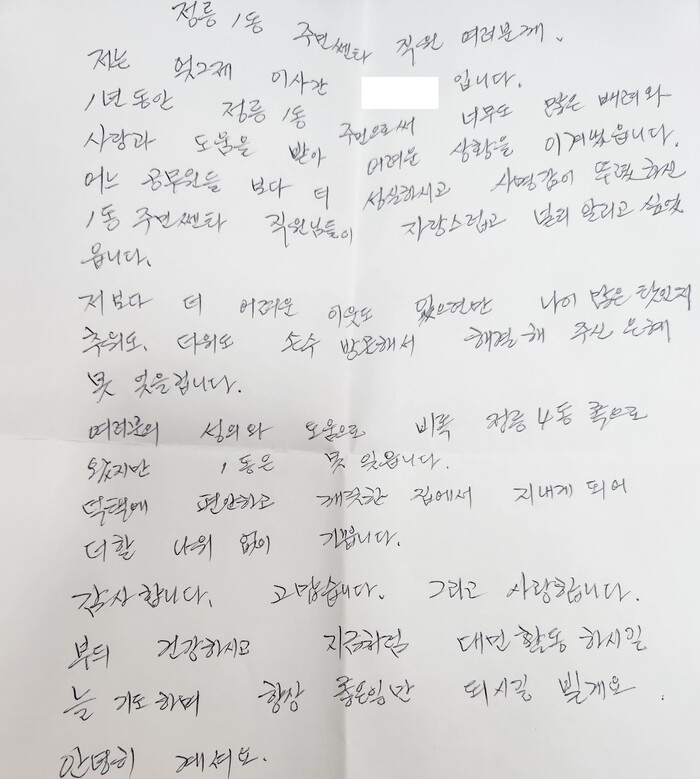 정릉 1동 주민쎈타 직원 여러분께.
저는 엊그제 이사간 입니다.
1년 동안 정릉 1동 주민으로써 너무도 많은 배려와
사랑과 도움을 받아 어려운 상황을 이겨냈읍니다.
어느 공무원들 보다 더 성실하시고 사명감이 뚜렷하신
1동 주민쎈타 직원님들이 자랑스럽고 널리 알리고 싶었
읍니다.
저보다 더 어려운 이웃도 있으련만 나이 많은 탓인지
추위도. 더위도 손수 방문해서 해결해 주신 은혜
못 잊을겁니다.
여러분의 성의와 도움으로 비록 정릉 4동 쪽으로
왔지만 1동은 못 잊읍니다.
덕택에 편안하고 깨끗한 집에서 지내게 되어
더할 나위 없이 기쁩니다.
감사합니다. 고맙습니다. 그리고 사랑합니다.
부듸 건강하시고 지금처럼 대민활동 하시길
늘 기도하며 항상 좋은일만 되시길 빌게요.
안녕히 계셔요.